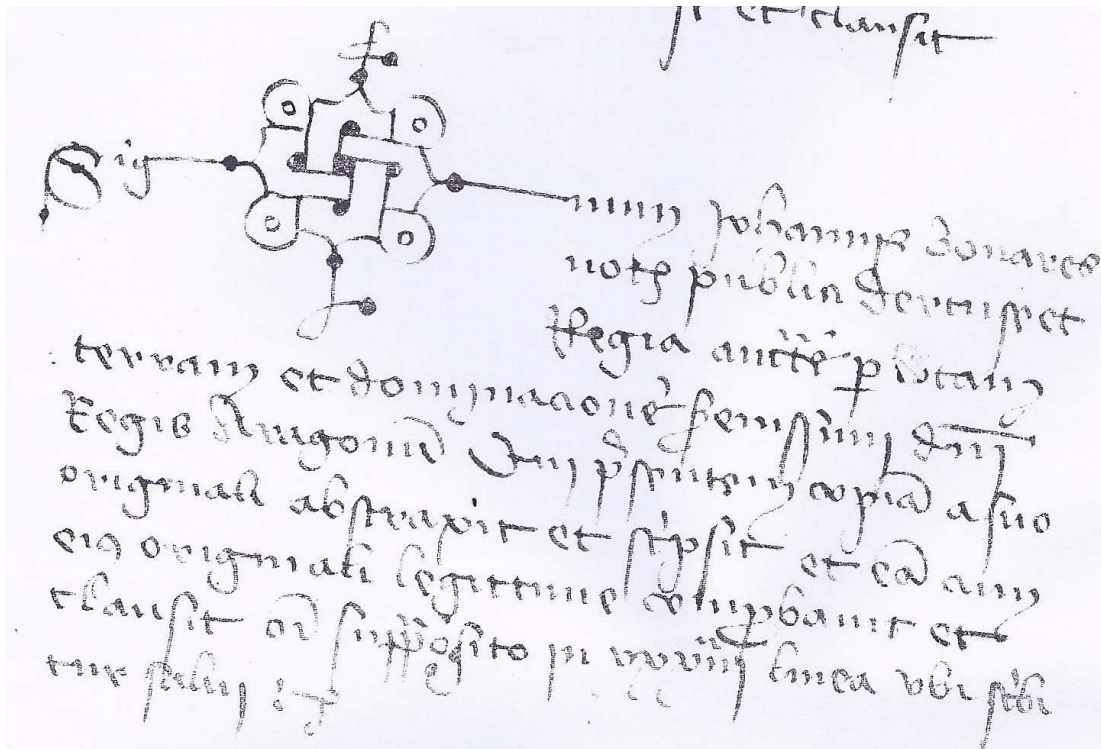 et clausit
Sig num Johannis Bonares
not publici Dertusse et
Regia auctte p totam
terram et dominacione serenissimi dni
Regis Aragonu Qui psentem copia a suo
originali abstraxit et scpsit et ea cum
eius originali legittime compbavit et
clausit cu supposito in xxviiij linea ubi scbi
tur